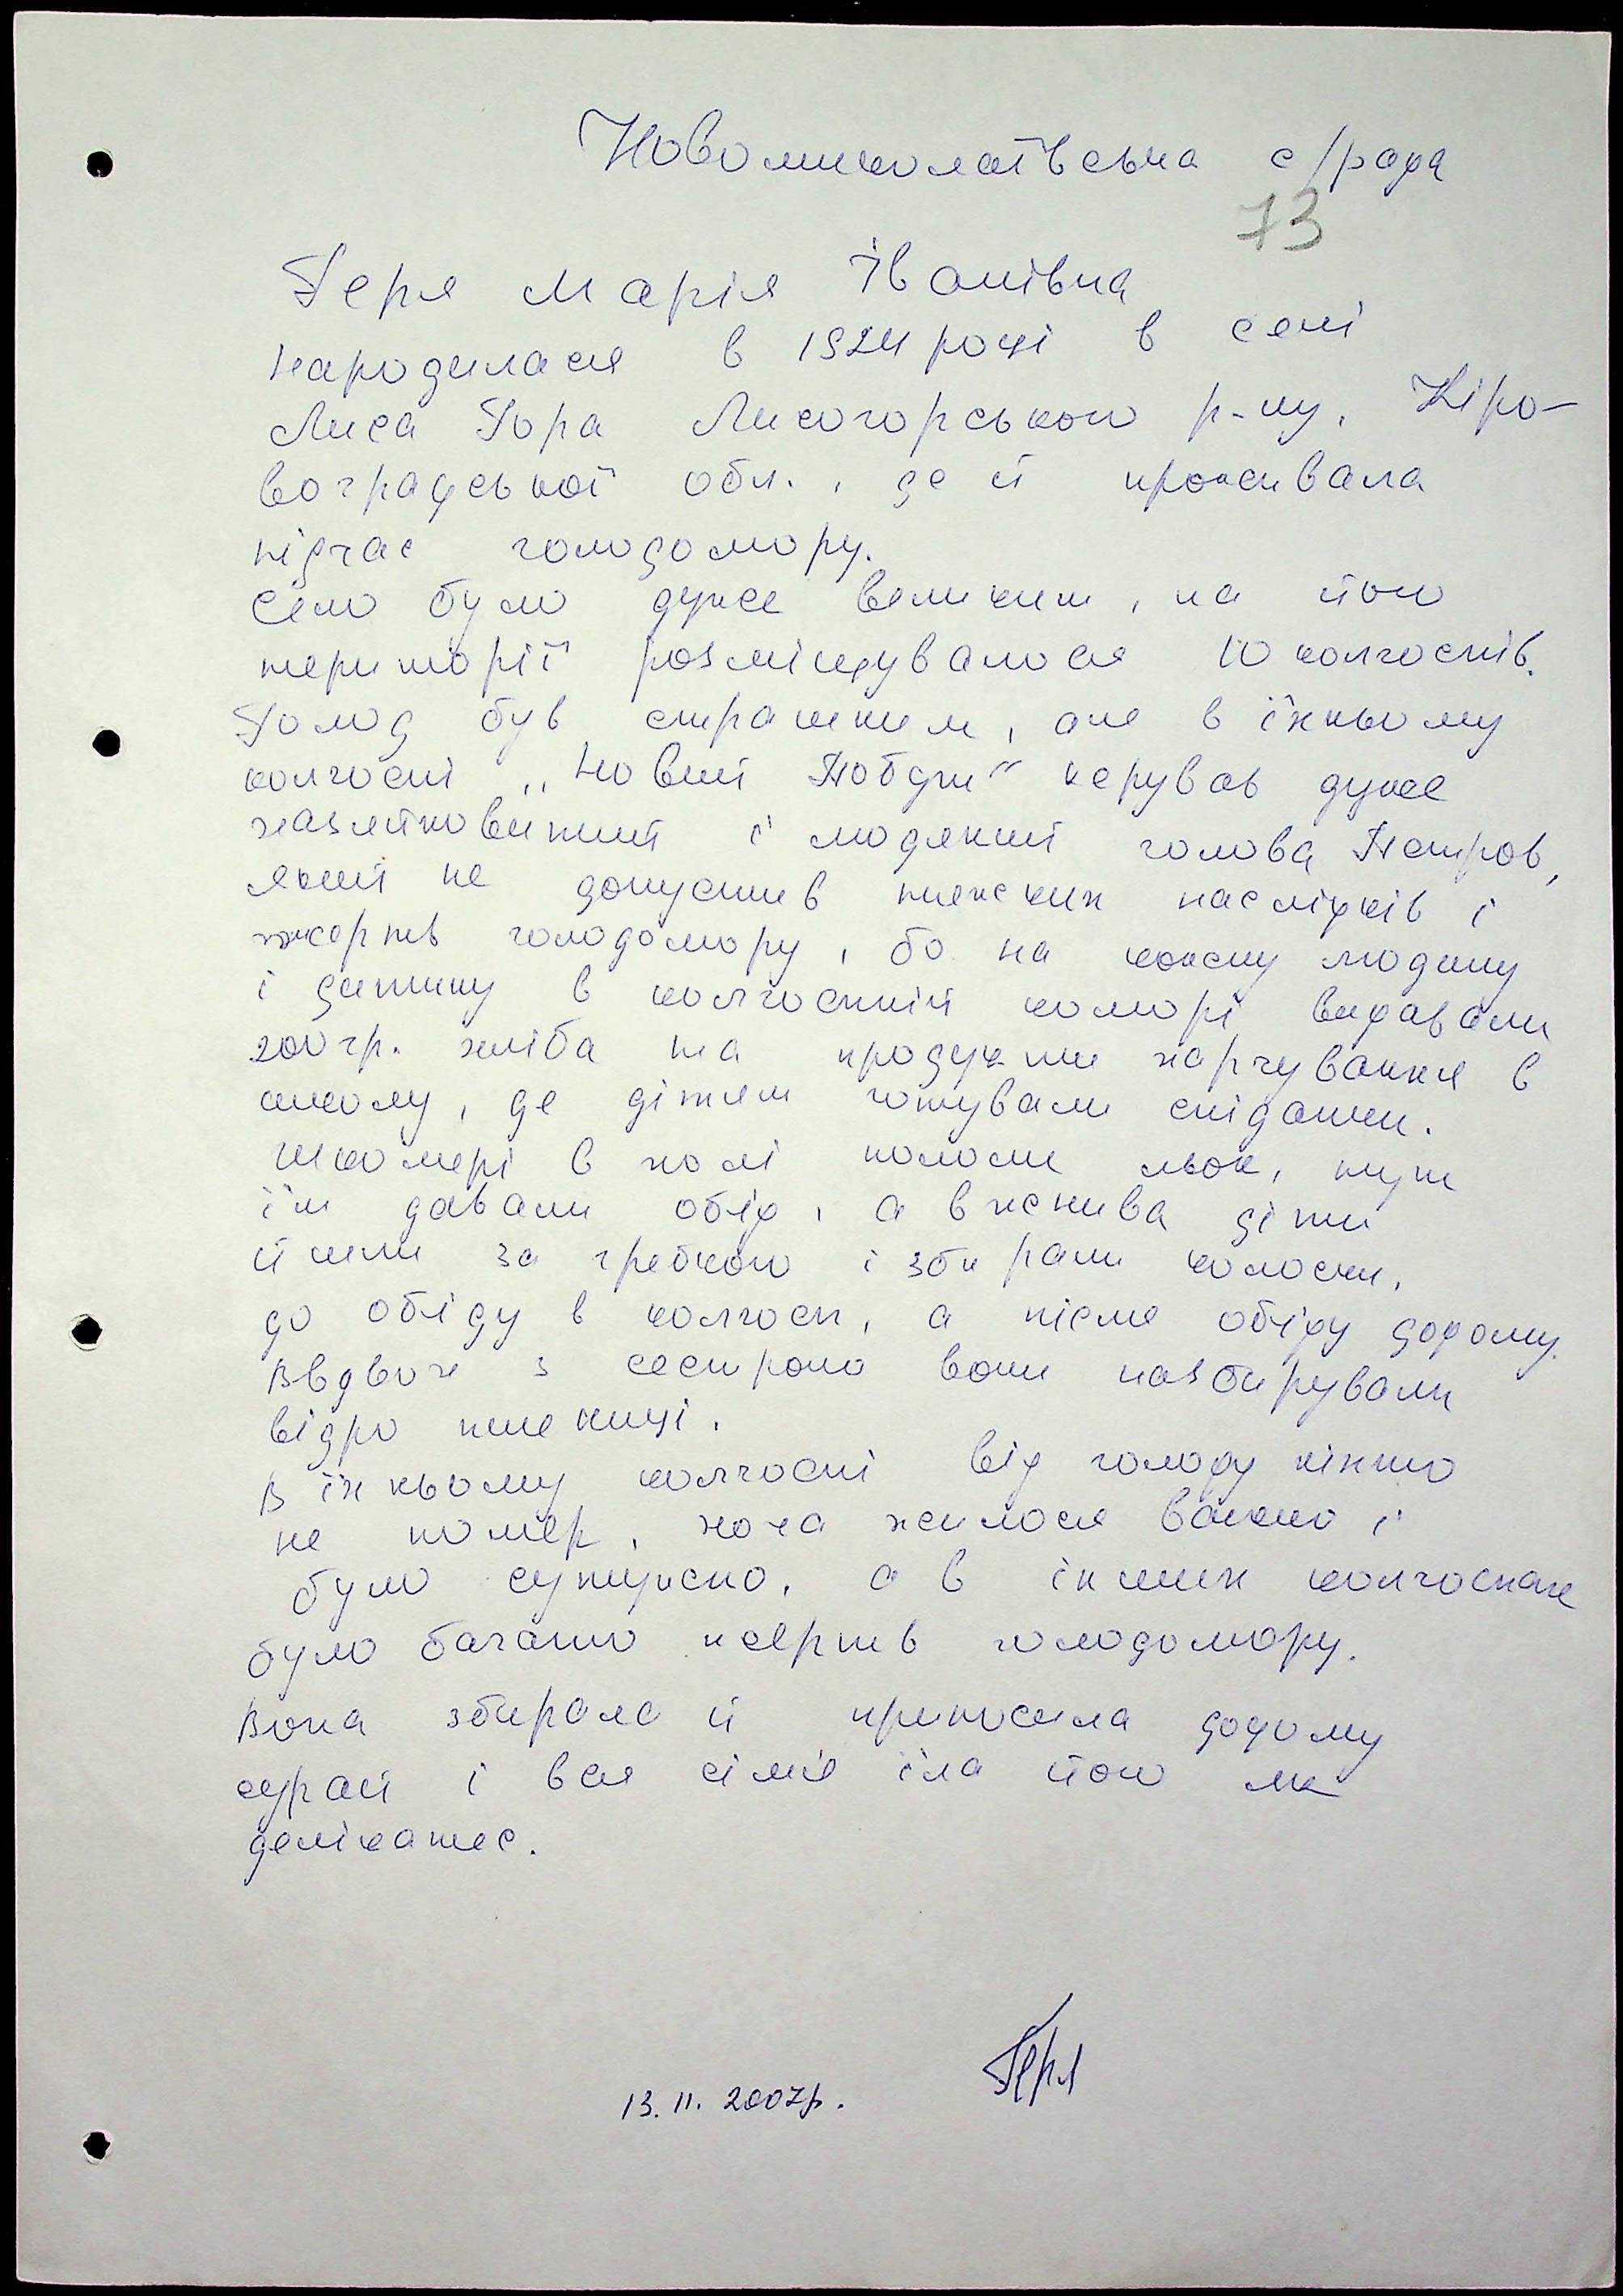 Новомиколаївська с/рада
73
Геря Марія Іванівна
народилася в 1924 році в селі
Лиса Гора Лисогорського р-ну, Кіро-
воградської обл., де й проживала
підчас голодомору.
Село було дуже великим, на його
території розміщувалося 10 колгоспів.
Голод був страшним, але в їхньому
колгоспі „Новий Побут" керував дуже
хазяйновитий і людяний голова Петров,
який не допустив тяжких наслідків і
жертв голодомору, бо на кожну людину
і дитину в колгоспній коморі видавали
200 гр. хліба та продукти харчування в
школу, де дітям готували сніданки.
Школярі в полі пололи льон, тут
їм давали обід, а в жнива діти
йшли за гребкою і збирали колоски,
до обіду в колгосп, а після обіду додому.
Вдвох з сестрою вони назбирували
відро пшениці.
В їхньому колгоспі від голоду ніхто
не помер, хоча жилося важко і
було сутужно, а в інших колгоспах
було багато жертв голодомору.
Вона збирала й приносила додому
курай і вся сімя їла його як
делікатес.
13.11.2007р. Геря